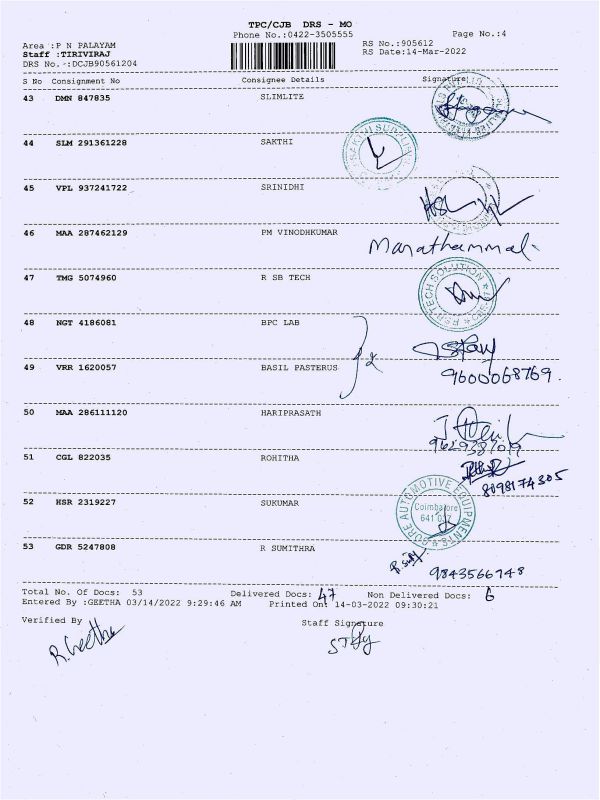 TPC/CJB DRS - MO
Phone No.:0422-3505555
Page No.:4
Area :P N PALAYAM
RS No.:905612
Staff :TIRIVIRAJ
RS Date:14-Mar-2022
DRS No.-:DCJB90561204
S No Consignment No Consignee Details Signature
43 DMN 847835 SLIMLITE
44 SLM 291361228 SAKTHI
45 VPL 937241722 SRINIDHI
46 MAA 287462129 PM VINODHKUMAR
Marathammal.
47 TMG 5074960 R SB TECH
48 NGT 4186081 BPC LAB
49 VRR 1620057 BASIL PASTERUS
9600068769.
50 MAA 286111120 HARIPRASATH
51 CGL 822035 ROHITHA
8098174305
52 HSR 2319227 SUKUMAR
CORE AUTOMOTIVE EQUIPMENTS
Coimbatore
53 GDR 5247808 R SUMITHRA
9843566748
Total No. Of Docs: 53 Delivered Docs: 47 Non Delivered Docs: 6
Entered By :GEETHA 03/14/2022 9:29:46 AM Printed On: 14-03-2022 09:30:21
Verified By Staff Signature
R.Geetha